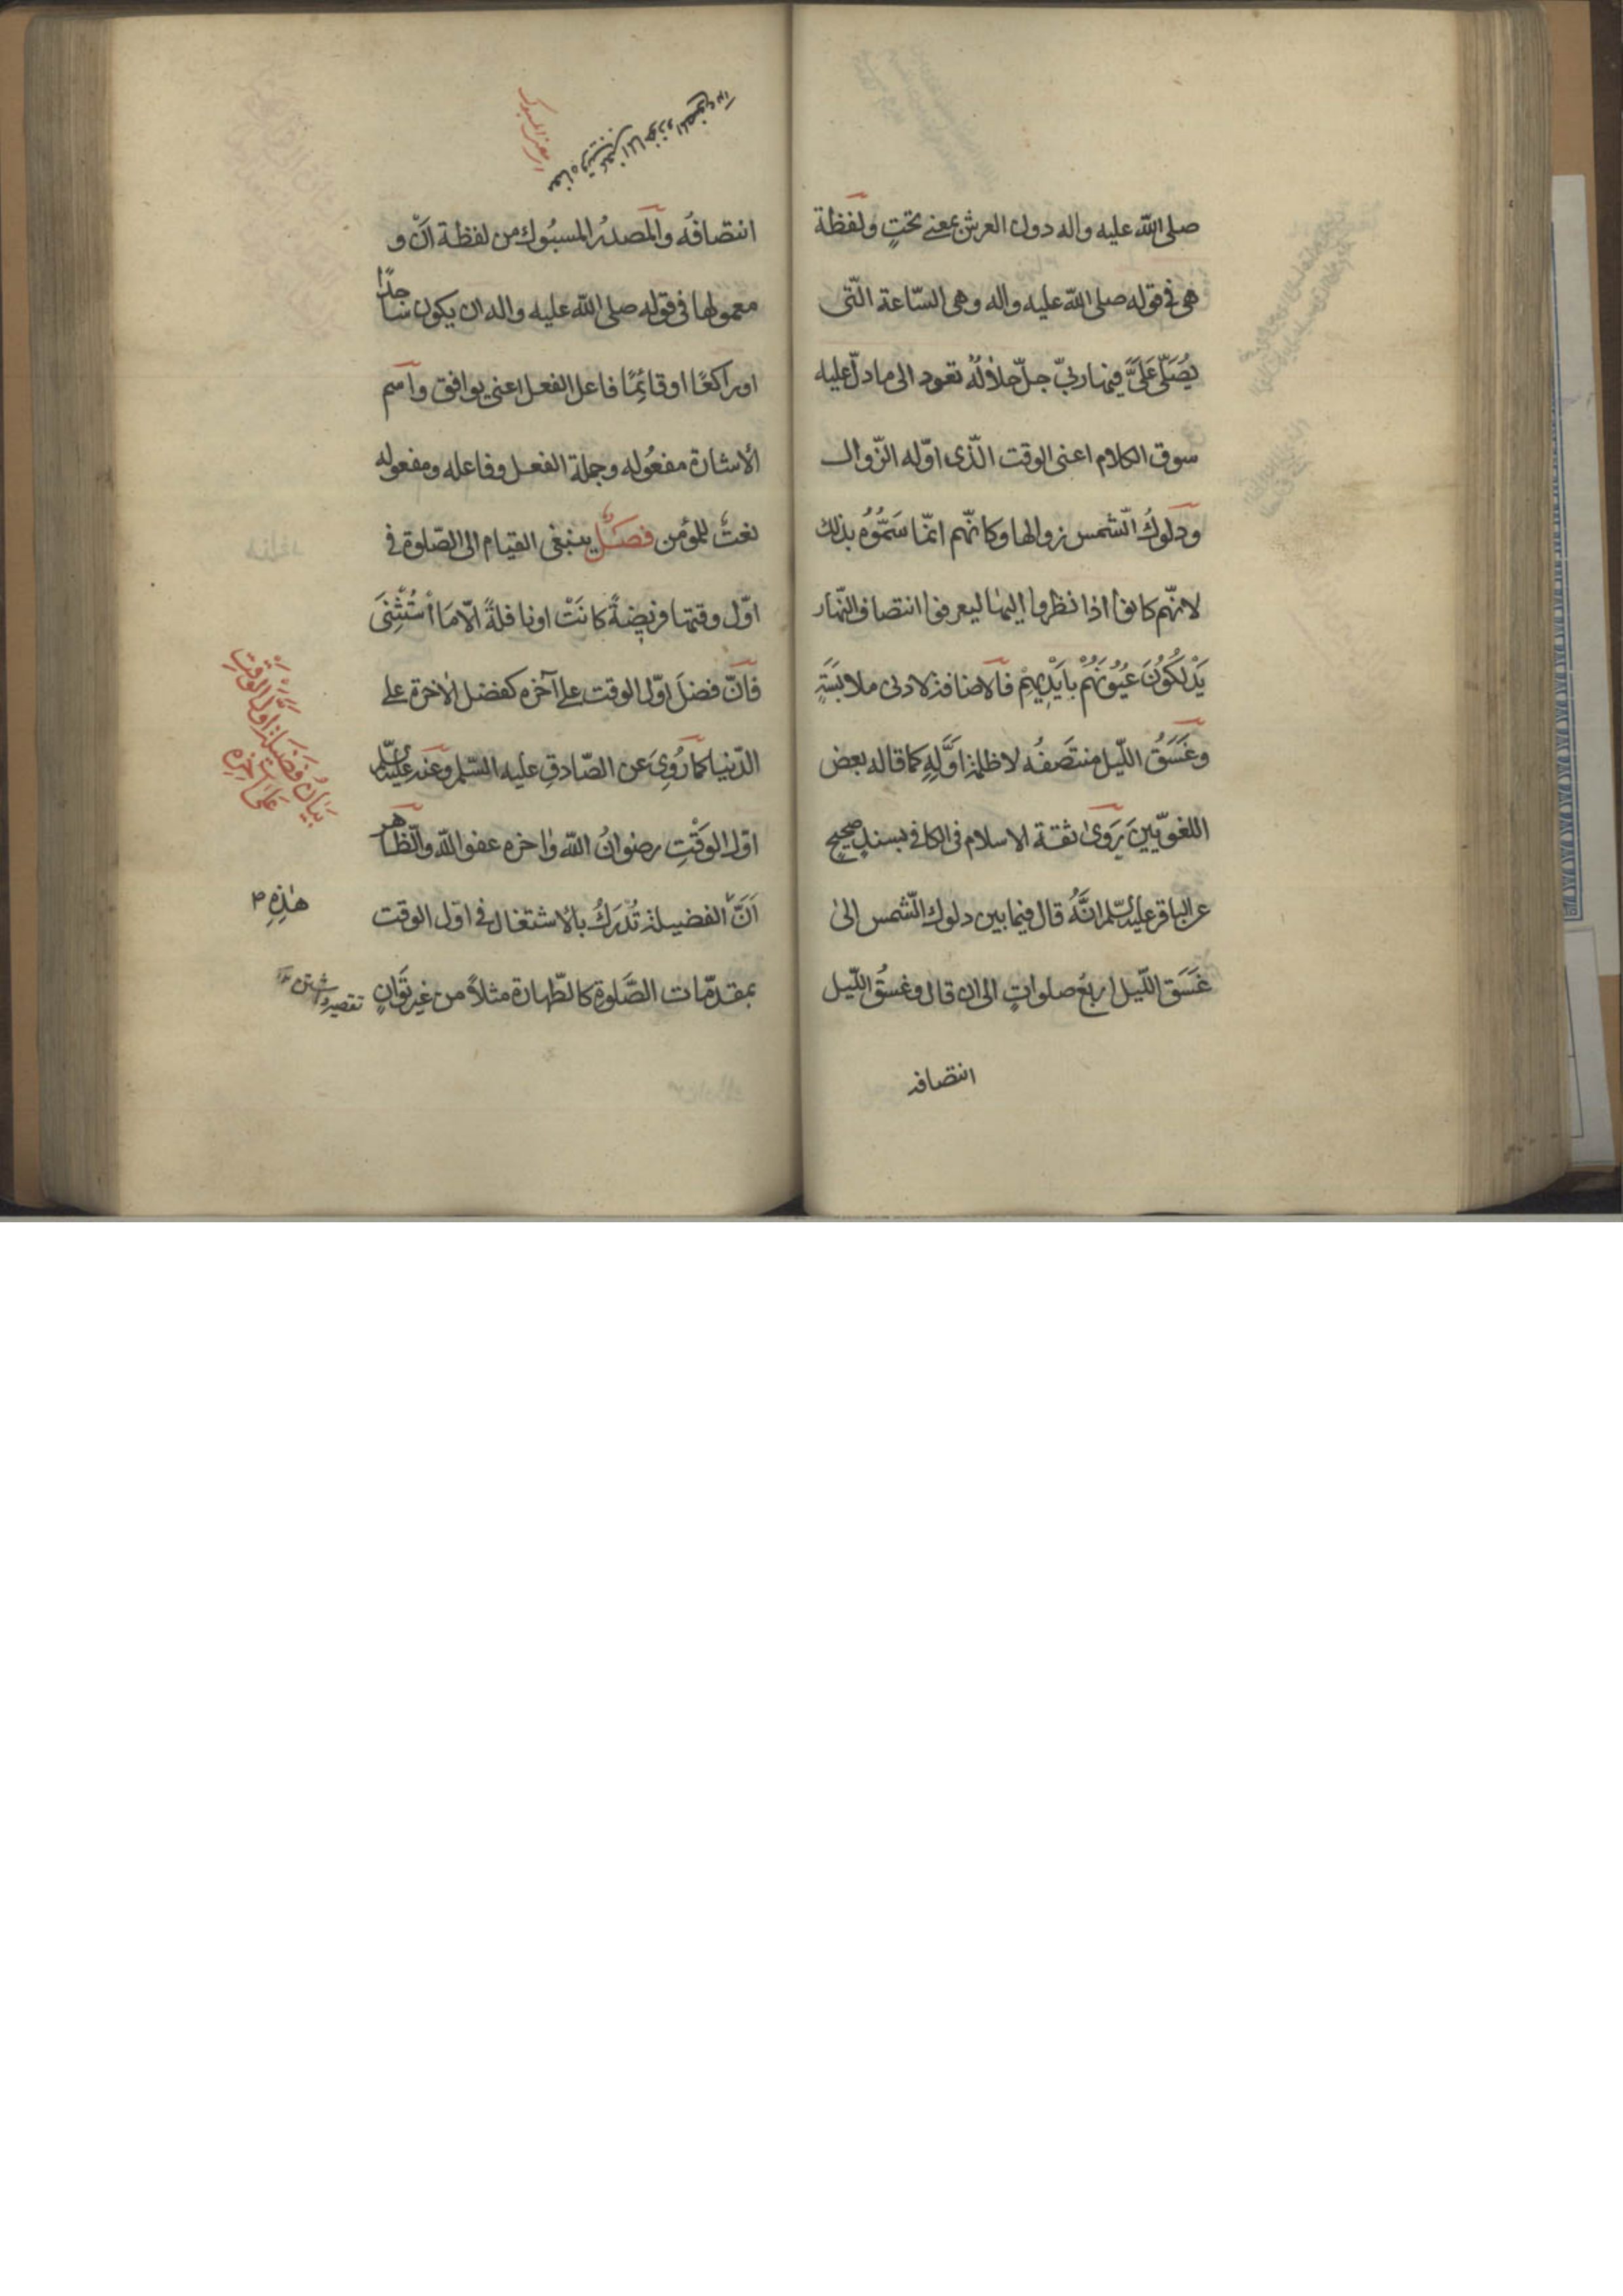 صلى اللّه عليه واله دون العرش بمعنى تحتٍ ولفظة
هى فى قوله صلى اللّه عليه واله وهى السّاعة الّتى
يُصَلّى عَلَىَّ فيها ربّى جلّ جلالُهُ تعود الى ما دلّ عليه
سوق الكلام اعنى الوقت الّذى اوّله الزّوال
ودلوكُ الشّمس زوالها وكانّهم انّما سَمُّوُه بذلك
لانّهم كانوا اذا نظروا اليها ليعرفوا انتصاف النّهار
يَدْلكُونَ عُيُونَهُمْ بايَدْيِهِمْ فالاضافة لادنى ملابَسَةٍ
وغَسَقُ اللّيل منتصَفُه لا ظلمة اوَّلِهِ كما قاله بعض
اللغويّينَ رَوىٰ ثقة الاسلام فى الكافى بسندٍ صحيحٍ
عن الباقر عليه السّلم انَّهُ قال فيما بين دلوك الشّمس الىٰ
غَسَق اللّيل اربعُ صلواتٍ الى ان قال وغسَقُ اللّيل
انتصافه
انتصافُه والمصدرُ المسبُوك من لفظة انّ و
معمولها فى قوله صلى اللّه عليه واله ان يكون ساجدًا
او راكعًا او قائِمًا فاعل الفعل اعنى يوافق واسم
الاشارة مفعُوله وجملة الفعل وفاعله ومفعوله
نعتٌ للمؤمن فصلٌ ينبغى القيام الى الصّلوة فى
اوّل وقتها فريضةً كانَتْ او نافلةً الّا مَا اسْتُثْنِىَ
فانّ فضلَ اوّل الوقت على آخره كفضل الاخرة على
الدّنيا كما رُوِىَ عن الصّادقِ عليه السّلم وعنه عليه السّلم
اوّل الوَقْتِ رضوانُ اللّه واخره عفو اللّه والظّاهر
اَنَّ الفضيلة تُدرَكُ بالاشتغال فى اوّل الوقت
هٰذِهِ
بمقدّمات الصَّلوة كالطّهارة مثلاً من غير تَوَانٍ
بَيَانُ فَضيلة اوّل الوَقْتِ
عَلىٰ اخره